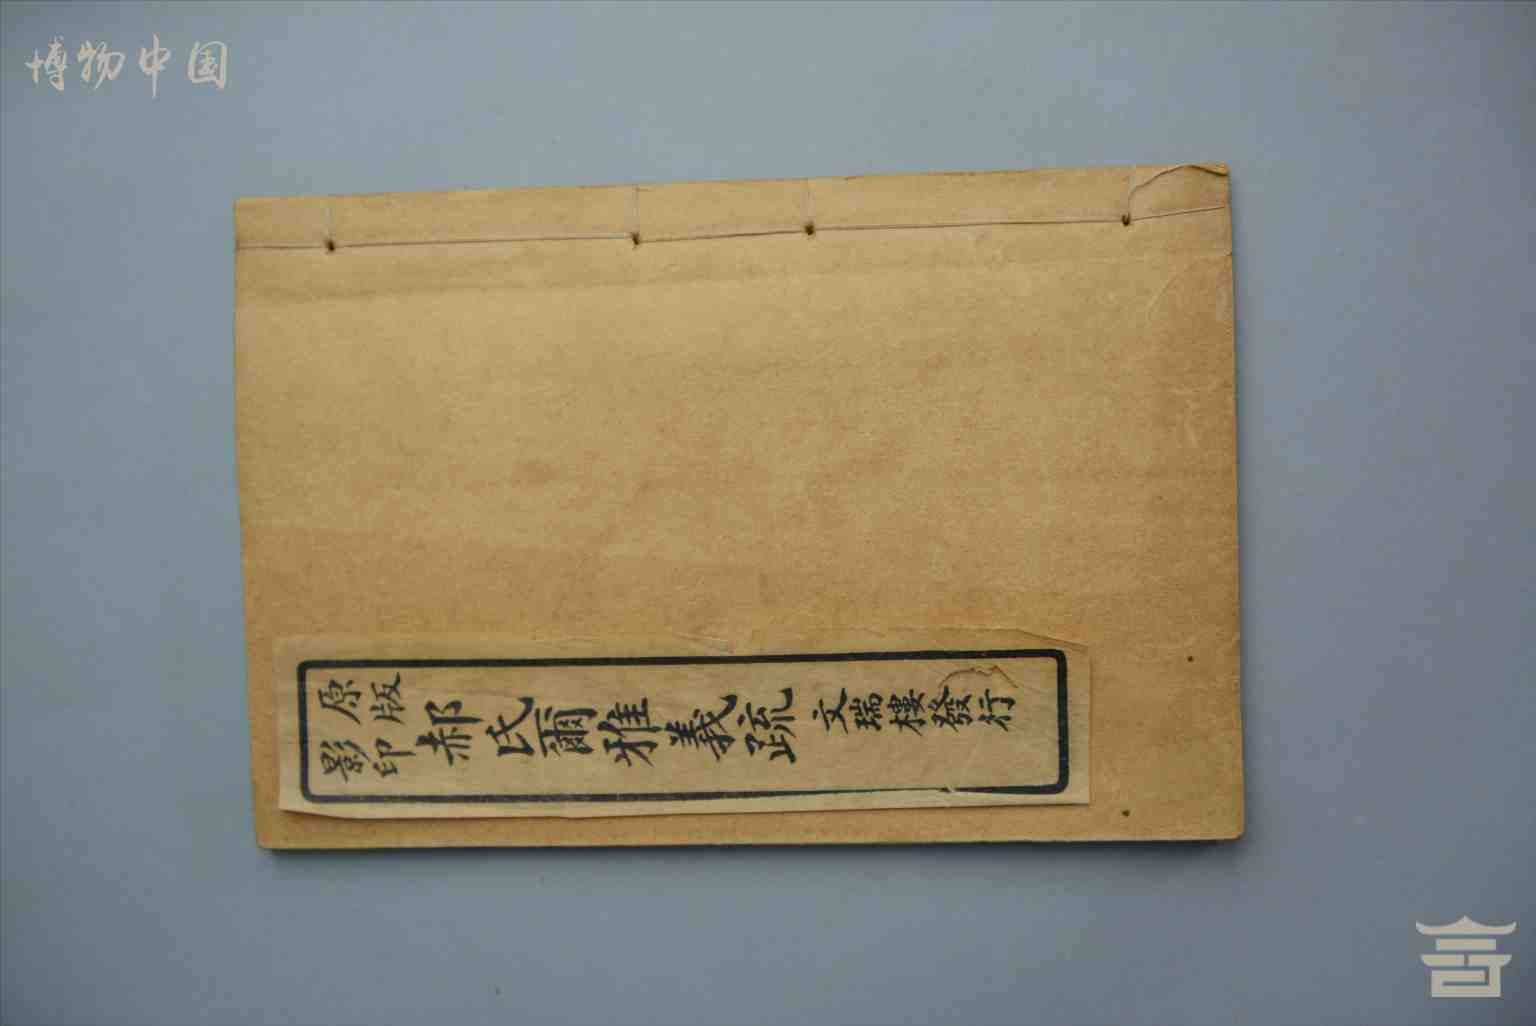 博物中国
原版
影印
郝氏爾雅義疏
文瑞樓發行